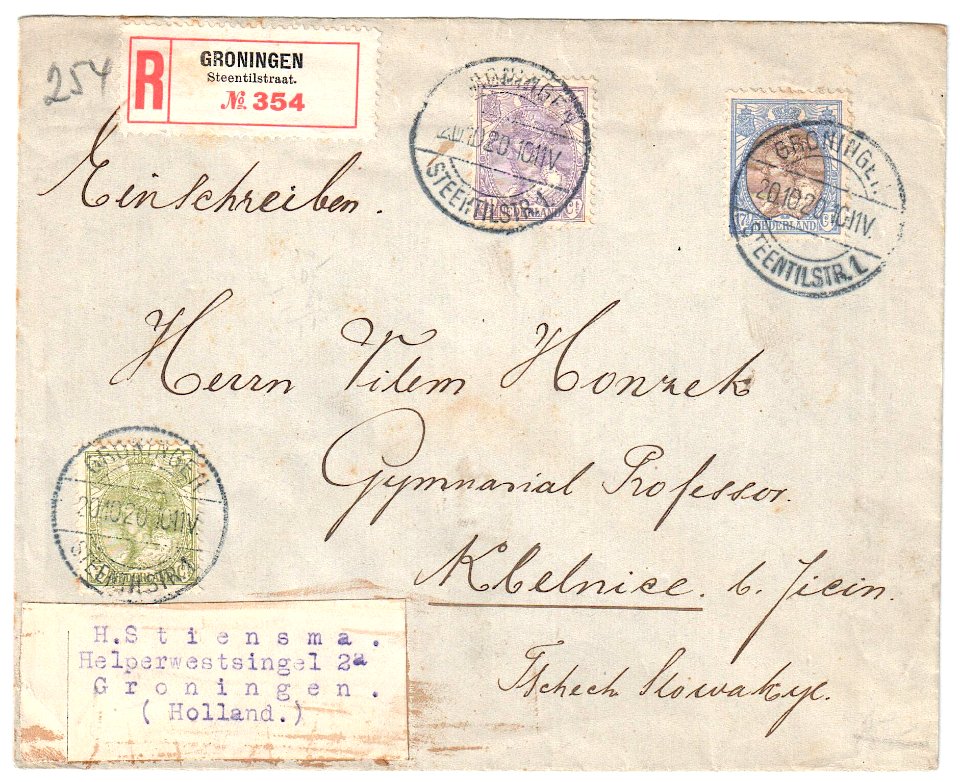 254
R
GRONINGEN
Steentilstraat.
№ 354
Einschreiben.
GRONINGEN
20.10.20.10-11V
STEENTILSTR.1
GRONINGEN
20.10.20.10-11V.
STEENTILSTR.1.
NEDERLAND
Herrn Vilem Honzek
Gymnasial Professor.
Kbelnice. b. Jicin.
Tschech Slowakye.
GRONINGEN
20.10.20.10-11V
STEENTILSTR.1
H.Stiensma.
Helperwestsingel 2a
Groningen.
( Holland.)